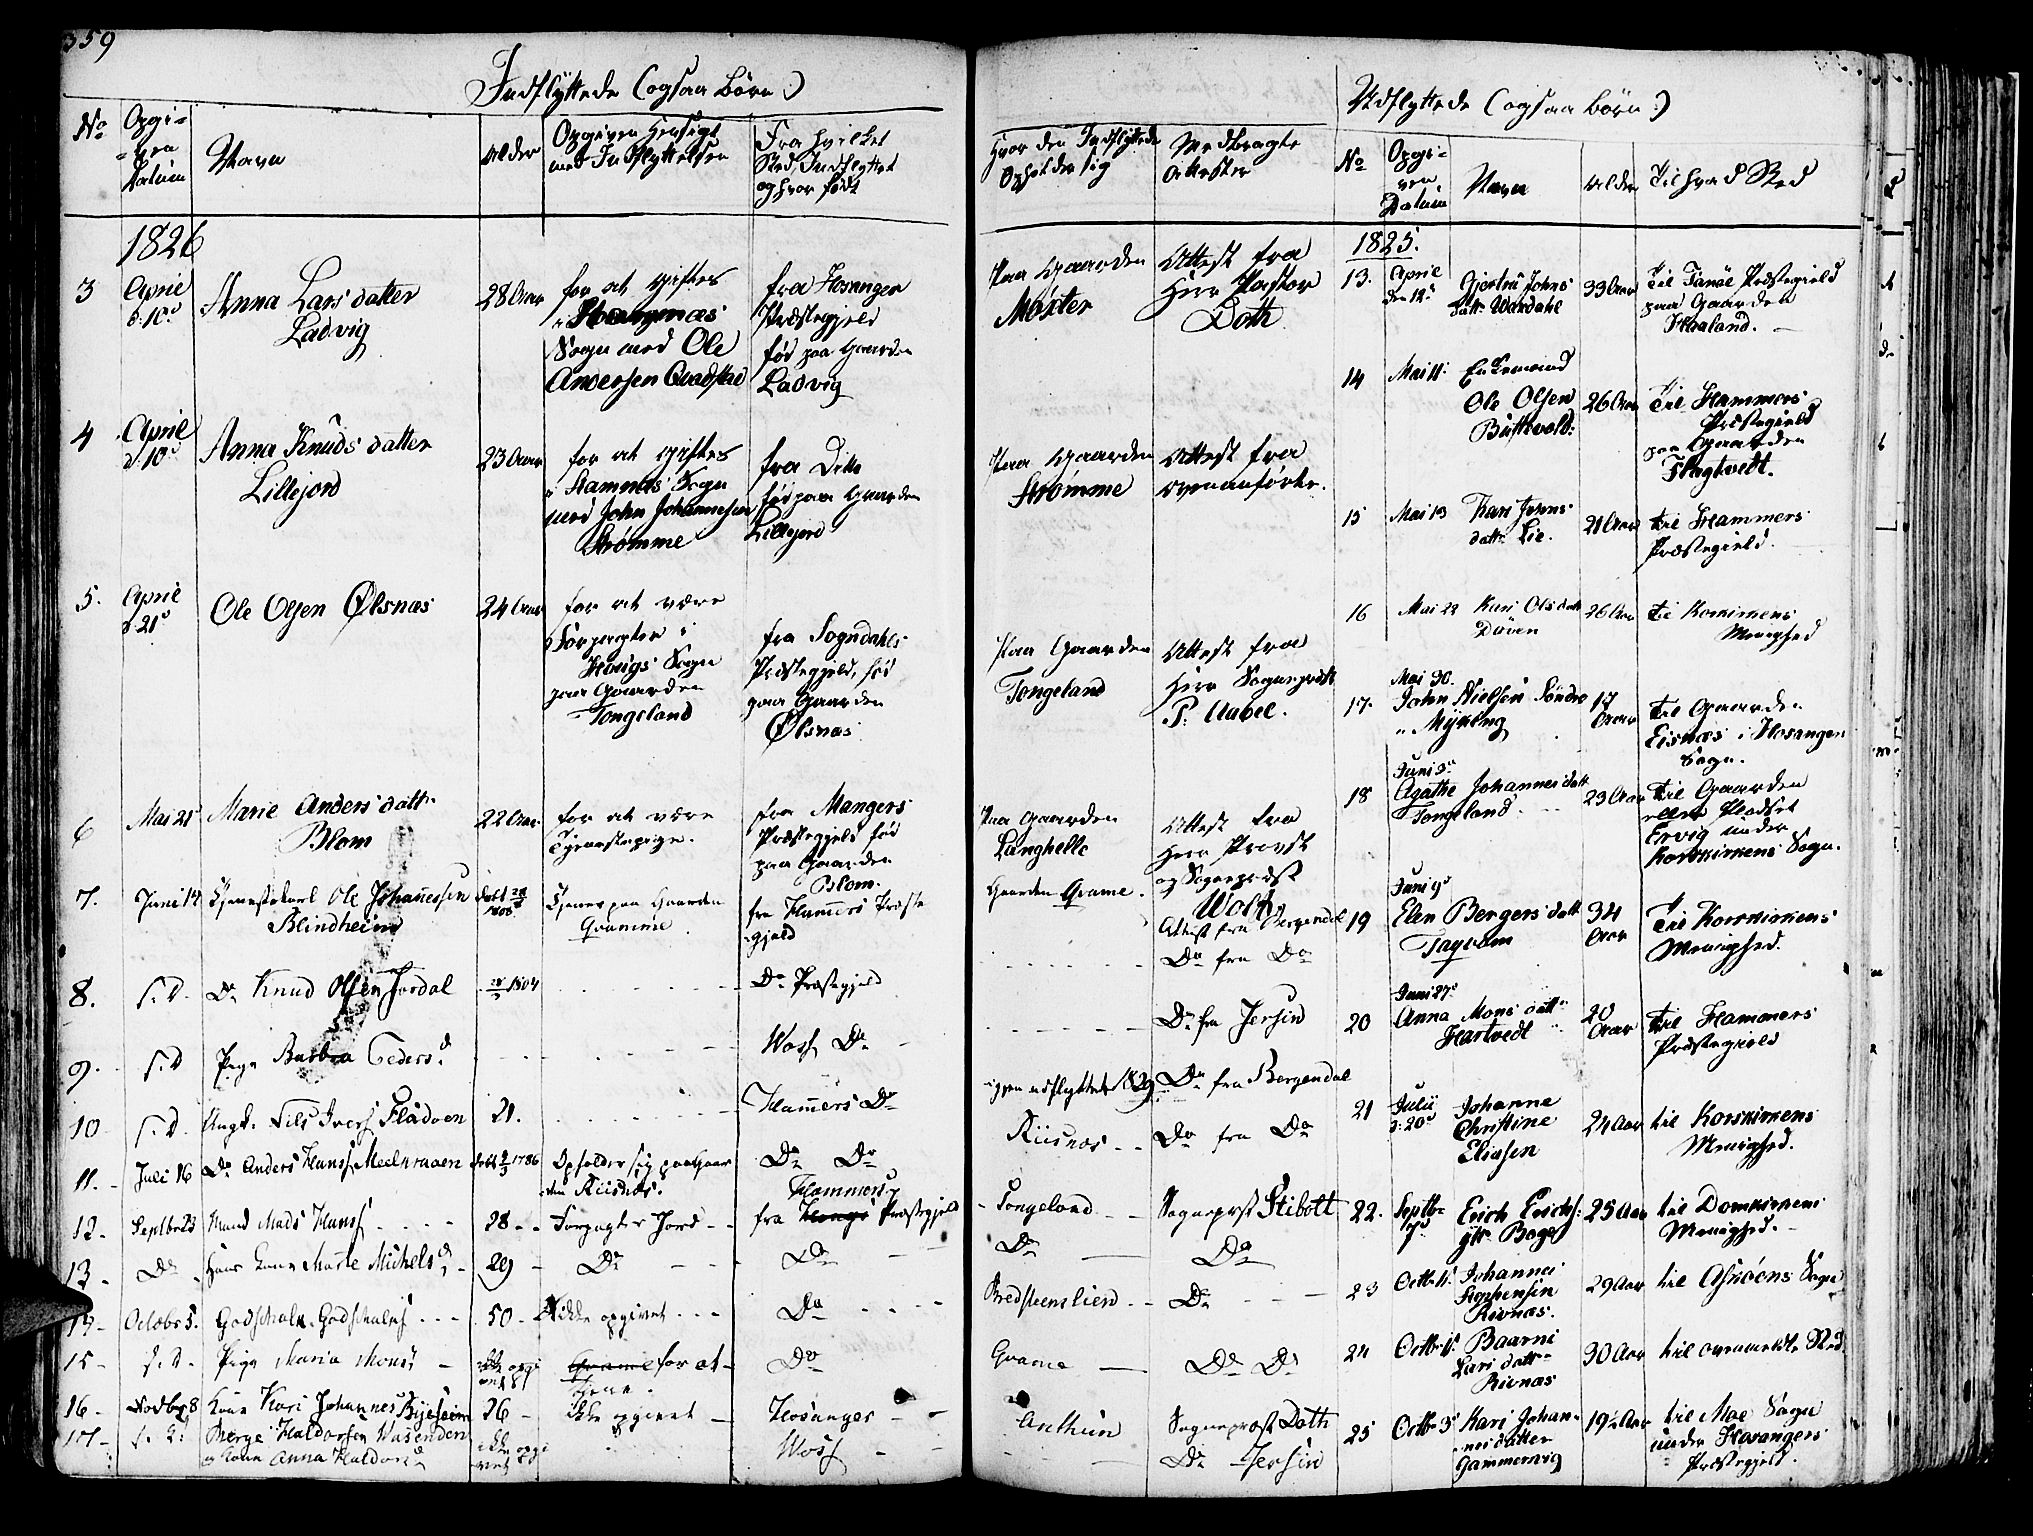 359
Indflyttede (ogsaa børn)
No
Opgi-
ven
Datum
Navn
Alder
Opgiven Hensigt
med Indflyttelsen
Fra hvilket
Sted Indflyttet
og hvor født
Hvor den Indflyttede
Opholder sig
Medbragte
Attester
1826
3
April
d: 10d
Anna Lars datter
Ladvig
28 Aar
for at giftes
i
Sogn med Ole
Andersen Qvadstad
fra Hosanger
Præstegjeld
fød paa Gaarden
Ladvig
Paa Gaarden
Moster
Attest fra
Herr Pastor
Dath
4
April
d 10d
Anna Knuds datter
Lillejord
23 Aar
for at giftes
i Hammers Sogn
med John Johannessen
Strømme
fra Ditto
fød paa Gaarden
Lillejord
Paa Gaarden
Strømme
Attest fra
ovenanførte.
5.
April
d 21d
Ole Olsen Ølsnæs
24 Aar
for at være
Forpagter i
Hougs Sogn
paa Gaarden
Tongeland
fra Sogndahls
Præstegjeld, fød
paa Gaarden
Ølsnæs
Paa Gaarden
Tongeland
Attest fra
Herr Sognepræst
P: Aabel.
6
Mai 21
Marie Anders datt.
Blom
22 Aar
for at være
Tjenestepige.
fra Mangers
Præstegjeld fød
paa Gaarden
Blom.
Paa Gaarden
Langhelle
Attest fra
Herr Provst
og Sognepræst
7.
Juni 14
Tjenestekarl Ole Johannessen
Blindheim
Tjener paa Gaarden
Gramme
fra Hammers Præste
gjeld
Gaarden Grame.
Attest fra Bergendal
8.
s. D.
Do Knud Olsen Jordal
1804
Do Præstegjeld
Do fra Do
9.
s. D
Pige Barbra Peders d
Woss Do
Do fra Jersin
10
s. D.
Ungk. Nils Ivers Fladven
21.
Hammers Do
igjen udflyttet 1829
Do fra Bergendal
11.
Juli 16
Do Anders Hanss
1786
Opholder sig paa Gaar
den Riisnæs.
Do Do
Riisnæs
Do fra Do
12.
Septbr 23
Mand Mads Hanss
28
Forpagter Jord
Hammers
fra Præstegjeld
Tongeland
Sognepræst Stibolt
13
Do
Hans Kone Marte Michels d
29
Do
Do
Do
Do
14
Octobr 5.
Godschalk Godschalks
50
Ikke opgivet
Do
Bredsteenslien
Do
15
s. D.
Pige Maria Monsd
ikke opgi
vet
Grame for at
tjene.
Do
Grame
Do Do
16
Novbr 8
Kone Kari Johannes
26
Ikke opgivet
Hosanger
Sognepræst Dath
17
s. D.
Berge Haldorsen Wasenden
og Kone Anna Haldors d
ikke opgi
vet
Woss
Do Jersin
Udflyttede (ogsaa børn)
No
Opgi-
ven
Datum
Navn
Alder
Til hvad Sted
1825.
13.
April
den 12d
Gjertru Johns
datt. Wardahl
33 Aar
Til Fanøe Præstegield
paa Gaarden
Haaland.
14
Mai 11
Enkemand
Ole Olsen
26 Aar
Til Hammers
Præstegield
paa Gaarden
Flagtvedt.
15
Mai 13
Kari Johns
datt. Lie.
21 Aar
til Hammers
Præstegield.
16
Mai 22
Kari Olsdatt
Düven
26 Aar
til Korskirkens
Menighed
Mai 30.
17.
John Nielsen Søndre
Mykling
17
Aar
til Gaarden
Eisnæs i Hosanger
Sogn.
Juni 3d
18
Agathe Johannesdatt
Tongeland
23 Aar
til Gaarden
eller Pladset
Ervig under
Korskirkens Sogn.
Juni 9d
19
Elen Bergers datt
34
Aar
Til Korskirkens
Menighed.
Juni 27d
20
Anna Mons datt
Hartvedt
20
Aar
til Hammers
Præstegield
21
Julii
d: 20d
Johanne
Christine
Eliasen
24 Aar
til Korskirkens
Menighed.
22.
Septbr
7d
Erich Erichs:
25 Aar
til Domkirkens
Menighed.
23
Octbr 11.
Johannes
Stephensen
Rivnæs.
29 Aar
til Askøens Sogn
24
Octbr 11.
Baarni
Lars datt
Rivnæs
30 Aar
til ovenmeldte Sted.
25
Octbr 3d
Kari Johan-
nesdatter
Gammersvig
19½ Aar
til Moe Sogn
under Hosangers
Præstegjeld.